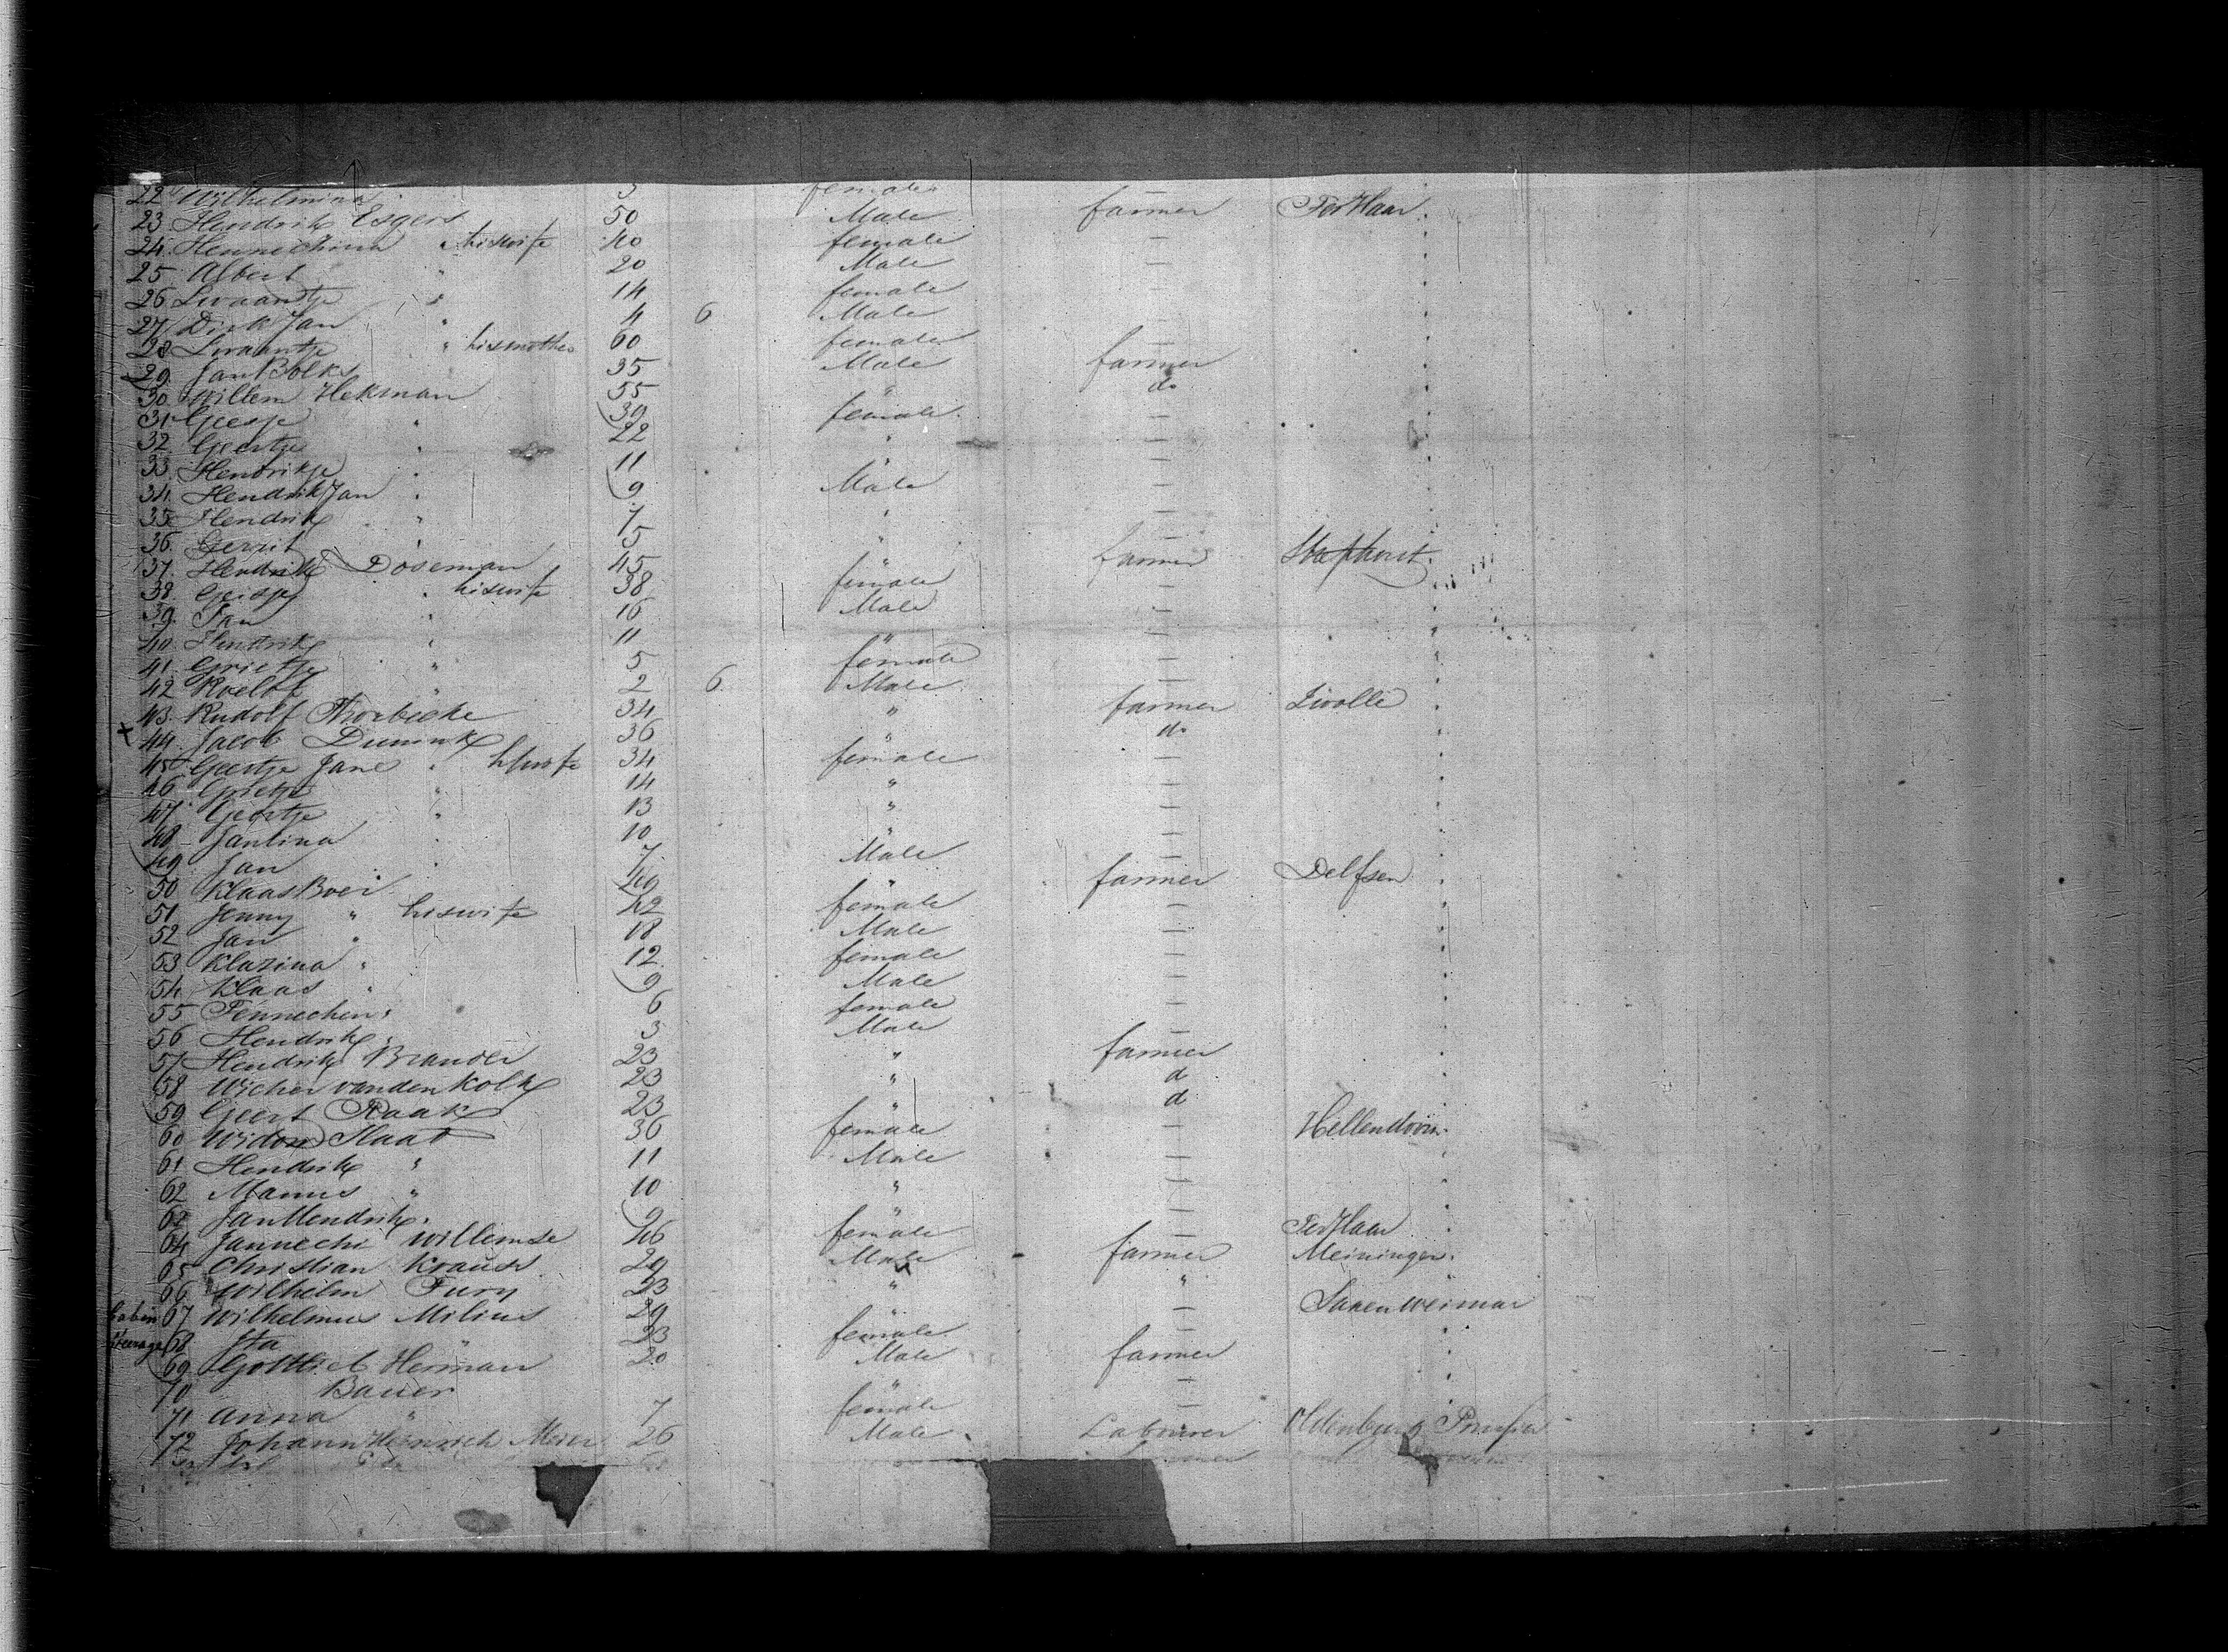 22 Wilhelmina 3 female —
23 Hendrik Esgers 50 Male farmer Ter Haar "
24. Hennechina " his wife 40 female — "
25 Albert " 20 Male — "
26 " 14 female — "
27 Dirk Jan " 4 6 Male — "
28 " his mother 60 female — "
29. Jan Bolks 35 Male farmer "
30 Willem Hekman 55 " do "
31 Geesje " 39 female — "
32. Geertje " 22 " — "
33. Hendrikje " 11 " — "
34. Hendrik Jan " 9 Male — "
35 Hendrik " 7 " — "
36. Gerrit " 5 " — "
37. Hendrik Doseman 45 " farmer Staphorst "
38. Geisje " his wife 38 female — "
39. Jan " 16 Male — "
40. Hendrik " 11 " — "
41. Grietje " 5 female — "
42 Roelof " 2 6 Male — "
43. Rudolf Thorbecke 34 " farmer Zwolle "
x 44. Jacob Dunnink 36 " do "
45 Geertje Jane " his wife 34 female — "
46 Grietje " 14 " — "
47. Geertje " 13 " — "
48 Jantina " 10 " — "
49 Jan " 7 Male — "
50 Klaas Boer 49 " farmer Delfsen "
51 Jenny " his wife 42 female — "
52 Jan " 18 Male — "
53 Klazina " 12 female — "
54 Klaas " 9 Male — "
55 Fennechen " 6 female — "
56 Hendrik " 3 Male — "
57 Hendrik Brander 23 " farmer "
58 Wicher van den Kolk 23 " d "
59 Geert Raak 23 " d "
60 Widow Slaat 36 female — Hellendoorn "
61 Hendrik " 11 Male — "
62 Mannes " 10 " — "
62 Jan Hendrik " 9 " — "
64 Jannechi Willemse 46 female — Ter Haar "
65 Christian Krauss 29 Male farmer Meiningen "
66 Wilhelm Fury 23 " " "
Cabin 67 Wilhelmus Milius 29 " — Saxen Weimar
Steerage 68 Ita " 23 female — "
69 Gottlieb Herman 20 Male farmer "
70 Bauer " — "
71 Anna " 7 female — "
72 Johann Heinrich Meier 26 Male Labourer Oldenburg Prussia